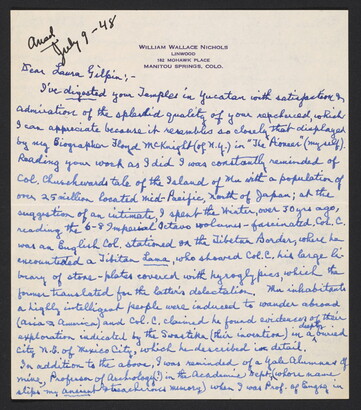 Ansd
July 9-48
WILLIAM WALLACE NICHOLS
LINWOOD
162 MOHAWK PLACE
MANITOU SPRINGS, COLO.
Dear Laura Gilpin;-
I've digested your Temples in Yucatan with satisfaction &
admiration of the splendid quality of your research, which
I can appreciate because it resembles so closely that displayed
by my Biographer Floyd McKnight (of N.Y.) in "The Pioneer" (myself).
Reading your work as I did I was constantly reminded of
Col. Churchward's tale of the Island of Mu with a population of
over 25 million located mid-Pacific, North of Japan; at the
suggestion of an intimate, I spent the Winter, over 30 yrs ago,
reading the 6-8 Imperial Octavo volumes - fascinated Col. C.
was an English Col. stationed on the Tibetan Border, where he
encountered a Tibetan Lama, who showed Col. C. his large li-
brary of stone-plates covered with hyroglyphics which the
former translated for the latter's delectation. The inhabitants
a highly intelligent people were induced to wander abroad
(Asia & America) and Col. C. claimed he found evidences of their
exploration indicated by the Swastika (their invention) in a deeply buried
City N.E. of Mexico City, which he described in detail.
In addition to the above, I was reminded of a Yale Alumnus of
mine, Profesor of Archology(?) in the Academic Dept. (whose name
slips my ancient & treacherous memory) when I was Prof. of Engrg in